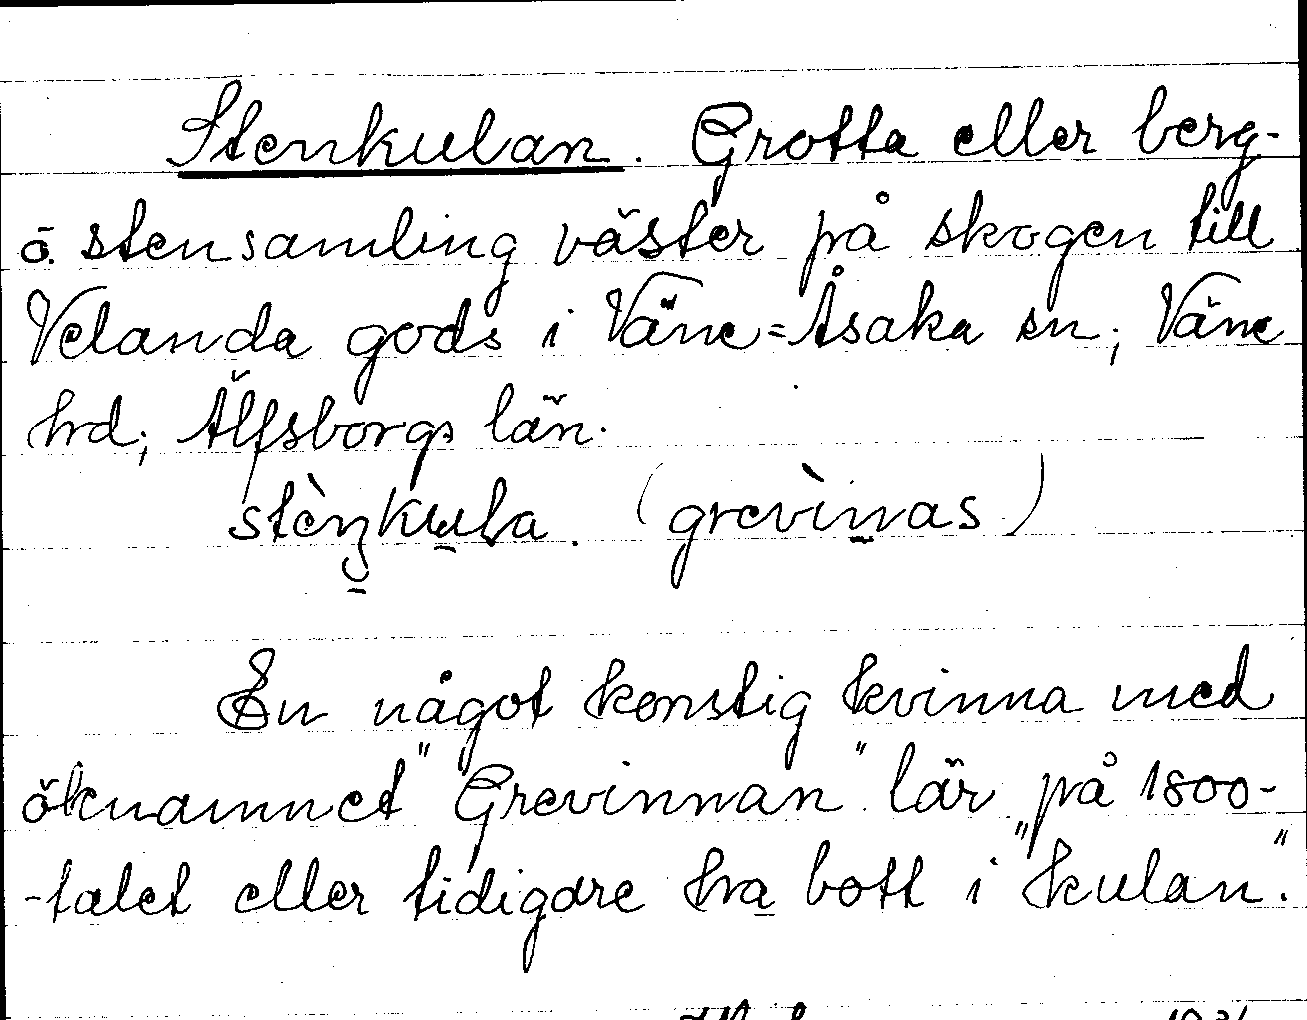 Stenkulan. Grotta eller berg-
o. stensamling väster på skogen till
Velanda gods i Väne=Åsaka sn; Väne
hrd; Älfsborgs län.
stèŋkula. (grevìnas)
En något konstig kvinna med
öknamnet "Grevinnan" lär på 1800-
-talet eller tidigare ha bott i "kulan".